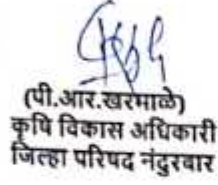 (पी.आर.खरमाळे)
कृषि विकास अधिकारी
जिल्हा परिषद नंदुरबार